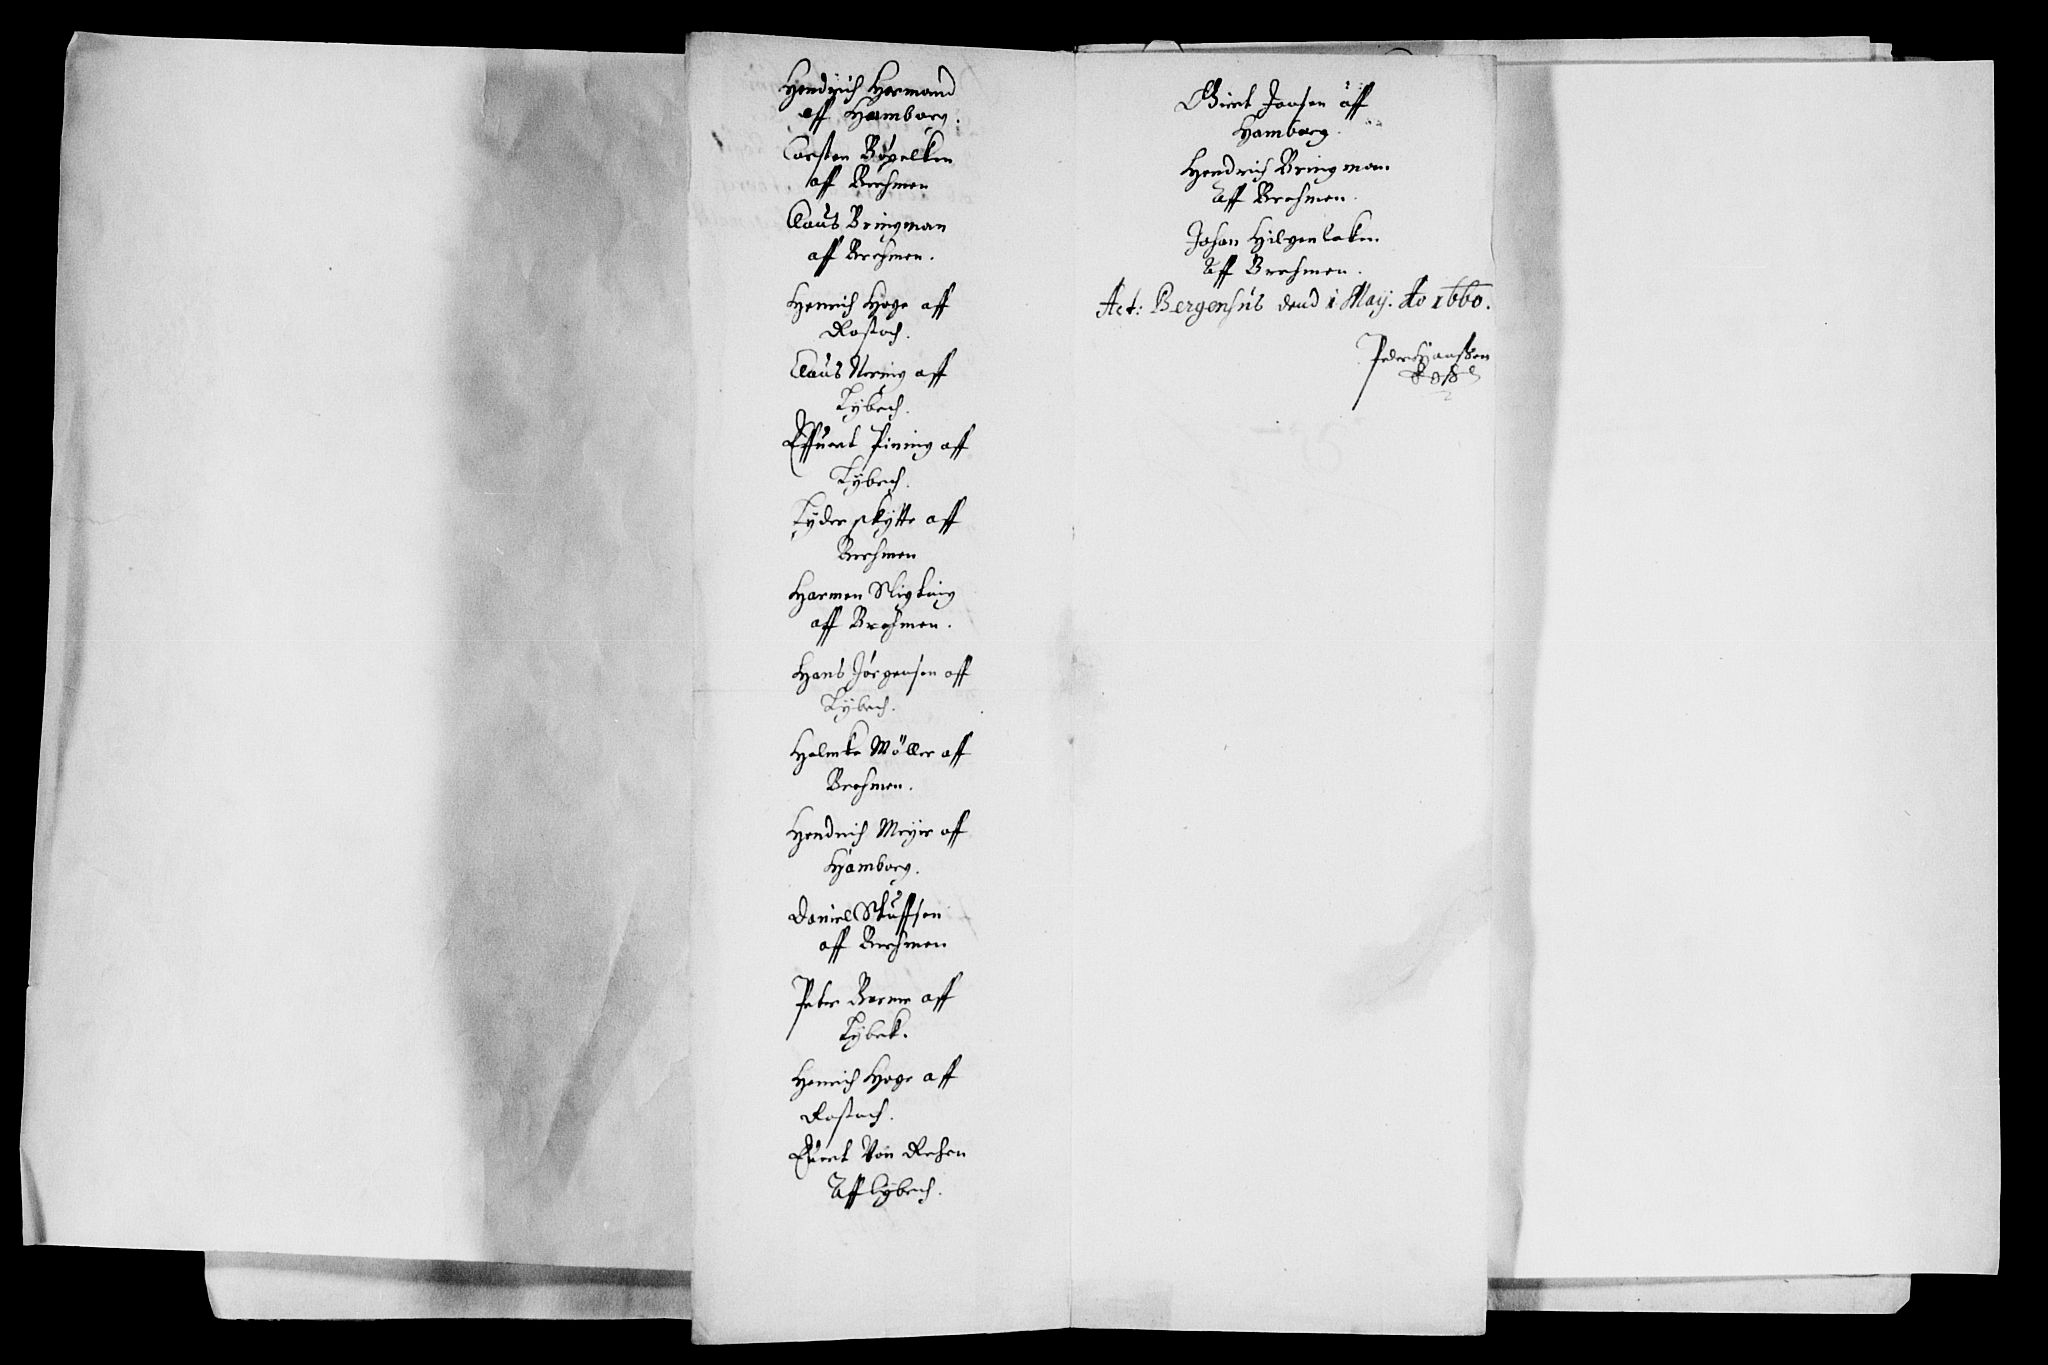 Hendrich Hermand
aff Hamborg.
Carsten Böpelken
aff Brehmen
Claus Bringman
aff Brehmen.
Henrich Hoge aff
Rostoch.
Claus Nering aff
Lybech.
Effuert Pining aff
Lybech.
Lyder skytte aff
Brehmen
Harmen
aff Brehmen.
Hans Jörgensen aff
Lybech.
Helmke Möller aff
Brehmen.
Hendrich Meyer aff
Hamborg.
Daniel
aff Brehmen
Peter Berner aff
Lybek.
Henrich Hoge aff
Rostoch.
Euert Von Rehen
Aff lybech.
Giert Jansen aff
Hamborg.
Hendrich Bringman
Aff Brehmen.
Johan Hilgenlaken
Aff Brehmen.
Act: Bergenhus dend 1 Maij. Ao 1660.
Peder Hanssen